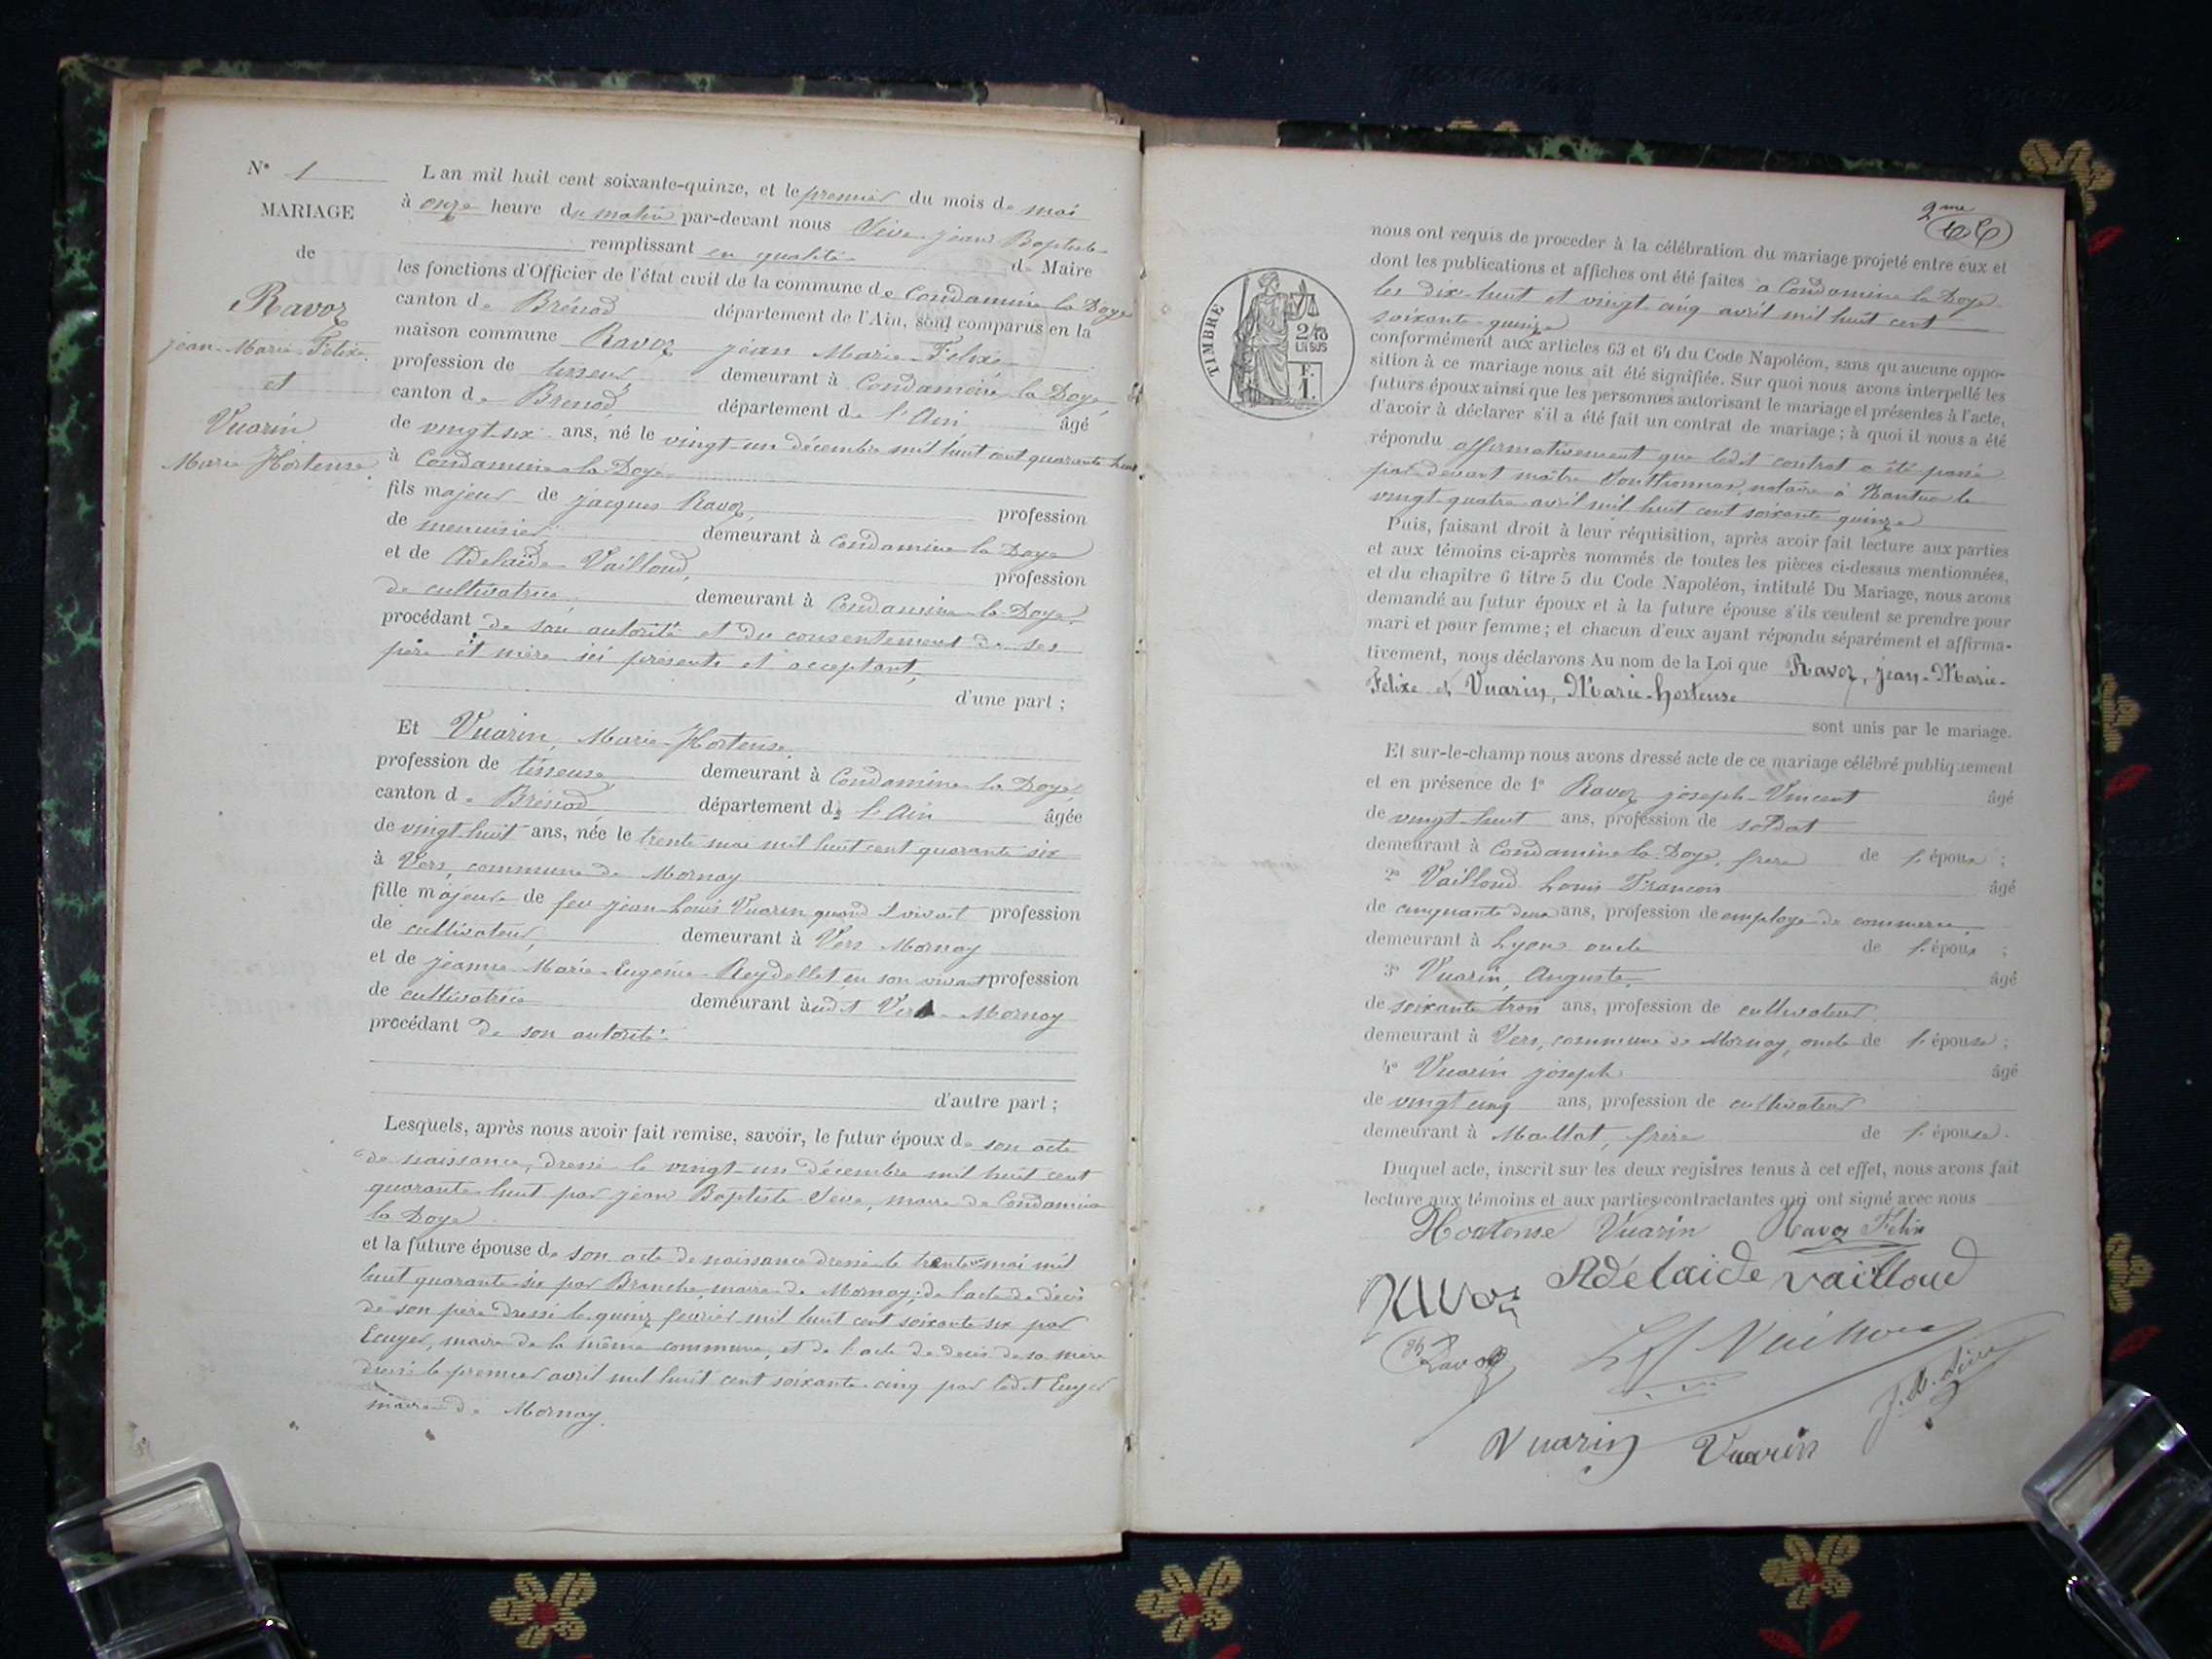 N° 1
MARIAGE
de
Ravoz
jean-Marie-Felixe
et
Vuarin
Marie Hortense
L an mil huit cent soixante-quinze, et le premier du mois de mai
à onze heure du matin par-devant nous Sève jean Baptiste
remplissant en qualité de Maire
les fonctions d'Officier de l'état civil de la commune de Condamine la Doye
canton de Brénod département de l'Ain, sont comparus en la
maison commune Ravoz jean Marie-Felixe
profession de tisseur demeurant à Condamine la Doye
canton de Brenod département de l'Ain âgé
de vingt-six ans, né le vingt-un décembre mil huit cent quarante huit
à Condamine la Doye
fils majeur de jacques Ravoz, profession
de menuisier demeurant à Condamine la Doye
et de Adelaïde Vailloud, profession
de cultivatrice demeurant à Condamine la Doye
procédant de son autorité et du consentement de ses
père et mère ici présents et acceptant,
d'une part ;
Et Vuarin, Marie-Hortense
profession de tisseuse demeurant à Condamine la Doye
canton de Brénod département de l'Ain âgée
de vingt huit ans, née le trente mai mil huit cent quarante six
à Vers, commune de Mornay
fille majeure de feu jean-Louis Vuarin quand vivait profession
de cultivateur, demeurant à Vers Mornay
et de jeanne-Marie-Eugénie-Reydellet en son vivant profession
de cultivatrice demeurant audit Vers-Mornay
procédant de son autorité
d'autre part ;
Lesquels, après nous avoir fait remise, savoir, le futur époux de son acte
de naissance, dressé le vingt-un décembre mil huit cent
quarante huit par jean Baptiste Sève, maire de Condamine
la Doye
et la future épouse de son acte de naissance dressé le trente mai mil
huit quarante-six par Branche, maire de Mornay; de l'acte de décès
de son père dressé le quinze février mil huit cent soixante six par
Ecuyer, maire de la même commune, et de l'acte de décès de sa mère
dressé le premier avril mil huit cent soixante-cinq par ledit Ecuyer
maire de Mornay.
2me
nous ont requis de proceder à la célébration du mariage projeté entre eux et
dont les publications et affiches ont été faites à Condamine la Doye
les dix-huit et vingt cinq avril mil huit cent
soixante-quinze
conformément aux articles 63 et 64 du Code Napoléon, sans qu'aucune oppo-
sition à ce mariage nous ait été signifiée. Sur quoi nous avons interpellé les
futurs époux ainsi que les personnes autorisant le mariage et présentes à l'acte,
d'avoir à déclarer s'il a été fait un contrat de mariage ; à quoi il nous a été
répondu affirmativement que ledit contrat a été passé
par devant maître Bouthonnas, notaire à Nantua le
vingt-quatre avril mil huit cent soixante quinze
Puis, faisant droit à leur réquisition, après avoir fait lecture aux parties
et aux témoins ci-après nommés de toutes les pièces ci-dessus mentionnées,
et du chapitre 6 titre 5 du Code Napoléon, intitulé Du Mariage, nous avons
demandé au futur époux et à la future épouse s'ils veulent se prendre pour
mari et pour femme ; et chacun d'eux ayant répondu séparément et affirma-
tivement, nous déclarons Au nom de la Loi que Ravoz, jean-Marie-
Felixe et Vuarin, Marie-hortense
sont unis par le mariage.
Et sur-le-champ nous avons dressé acte de ce mariage célébré publiquement
et en présence de 1° Ravoz joseph-Vincent âgé
de vingt-huit ans, profession de soldat
demeurant à Condamine la Doye, frère de l'époux ;
2° Vailloud Louis François âgé
de cinquante deux ans, profession de employé de commerce,
demeurant à Lyon oncle de l'époux ;
3° Vuarin, Auguste, âgé
de soixante trois ans, profession de cultivateur
demeurant à Vers, commune de Mornay, oncle de l'épouse ;
4° Vuarin joseph âgé
de vingt cinq ans, profession de cultivateur
demeurant à Maillat, frère de l'épouse.
Duquel acte, inscrit sur les deux registres tenus à cet effet, nous avons fait
lecture aux témoins et aux parties contractantes qui ont signé avec nous
Hortense Vuarin Ravoz Felix
Ravoz Adelaide vailloud
Ravoz
J. B. Sève
Vuarin Vuarin
TIMBRE
2/10
EN SUS
F.
1.